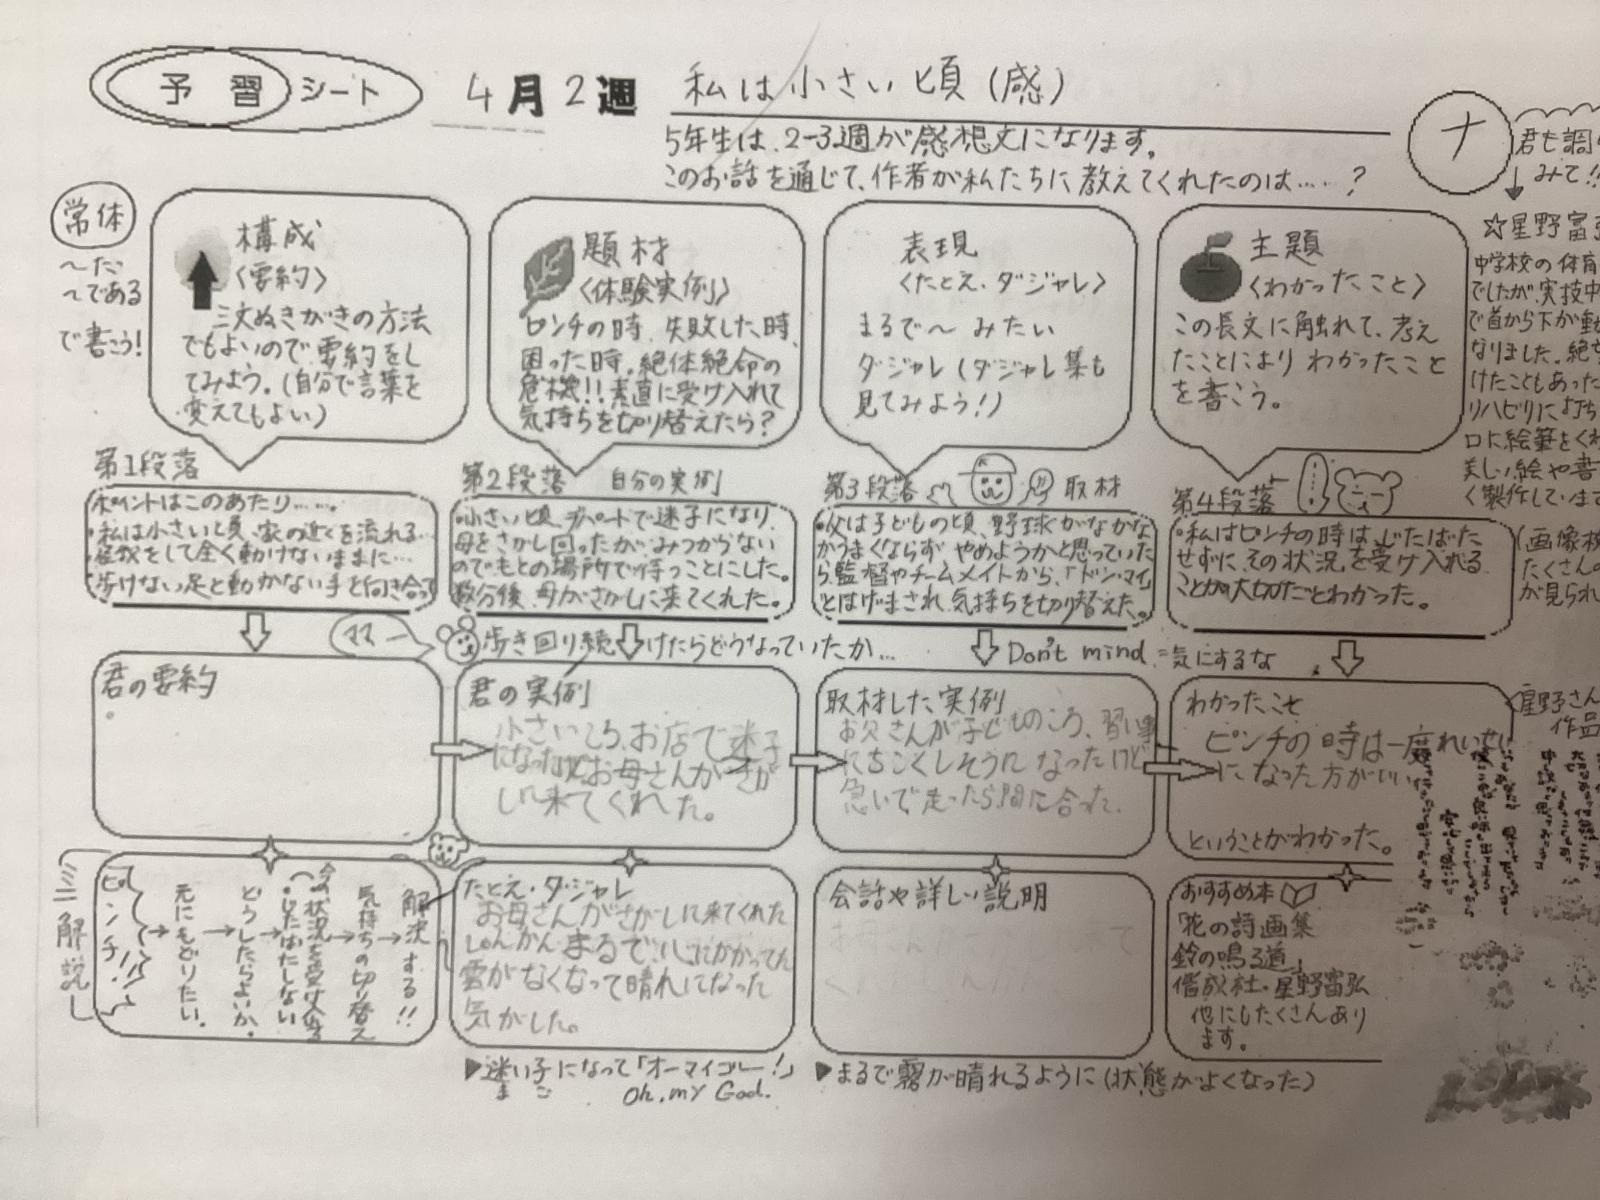 予習シート
4月2週
私は小さい頃(感)
5年生は、2-3週が感想文になります。
このお話を通じて、作者が私たちに教えてくれたのは……?
ナ
君も調
みて!!
常体
〜だ、
〜である
で書こう!
構成
〈要約〉
三文ぬきがきの方法
でもよいので要約をし
てみよう。(自分で言葉を
変えてもよい)
題材
〈体験実例〉
ピンチの時、失敗した時、
困った時。絶体絶命の
危機!!素直に受け入れて
気持ちを切り替えたら?
表現
〈たとえ・ダジャレ〉
まるで〜みたい
ダジャレ(ダジャレ集も
見てみよう!)
主題
〈わかったこと〉
この長文に触れて、考え
たことによりわかったこと
を書こう。
☆星野富弘
中学校の体育
でしたが、実技中
で首から下が動
なりました。絶
けたこともあった
リハビリに打ち
口に絵筆をくわ
美しい絵や書
く製作しています
(画像検
たくさんの
が見られ
第1段落
ポイントはこのあたり……。
・私は小さい頃、家の近くを流れる…
・怪我をして全く動けないままに…
・歩けない足と動かない手と向き合って
第2段落 自分の実例
・小さい頃、デパートで迷子になり、
母をさがし回ったが、みつからない
のでもとの場所で待つことにした。
数分後、母がさがしに来てくれた。
第3段落 取材
・父は子どもの頃、野球がなかな
かうまくならず、やめようかと思っていた
ら、監督やチームメイトから、「ドンマイ」
とはげまされ、気持ちを切り替えた。
第4段落
・私はピンチの時は、じたばた
せずに、その状況を受け入れる
ことが大切だとわかった。
ママー
歩き回り続けたらどうなっていたか…
Don't mind.=気にするな
君の要約
君の実例
小さいころ、お店で迷子
になったけどお母さんがさが
しに来てくれた。
取材した実例
お父さんが子どものころ、習い事
にちこくしそうになったけど
急いで走ったら間に合った。
わかったこと
ピンチの時は一度れいせい
になった方がいい
ということがわかった。
星野さん
作品
ミニ解説
ピンチ!!
元にもどりたい。
どうしたらよいか。
今の状況を受け入れる
(じたばたしない
気持ちの切り替え
解決する!!
たとえ・ダジャレ
お母さんがさがしに来てくれた
しゅんかんまるで心にかかってた
雲がなくなって晴れになった
気がした。
会話や詳しい説明
おすすめ本
「花の詩画集
鈴の鳴る道」
偕成社・星野富弘
他にもたくさんあり
ます。
▶迷い子になって「オーマイゴー!」
まご
Oh, my God.
▶まるで霧が晴れるように(状態がよくなった)